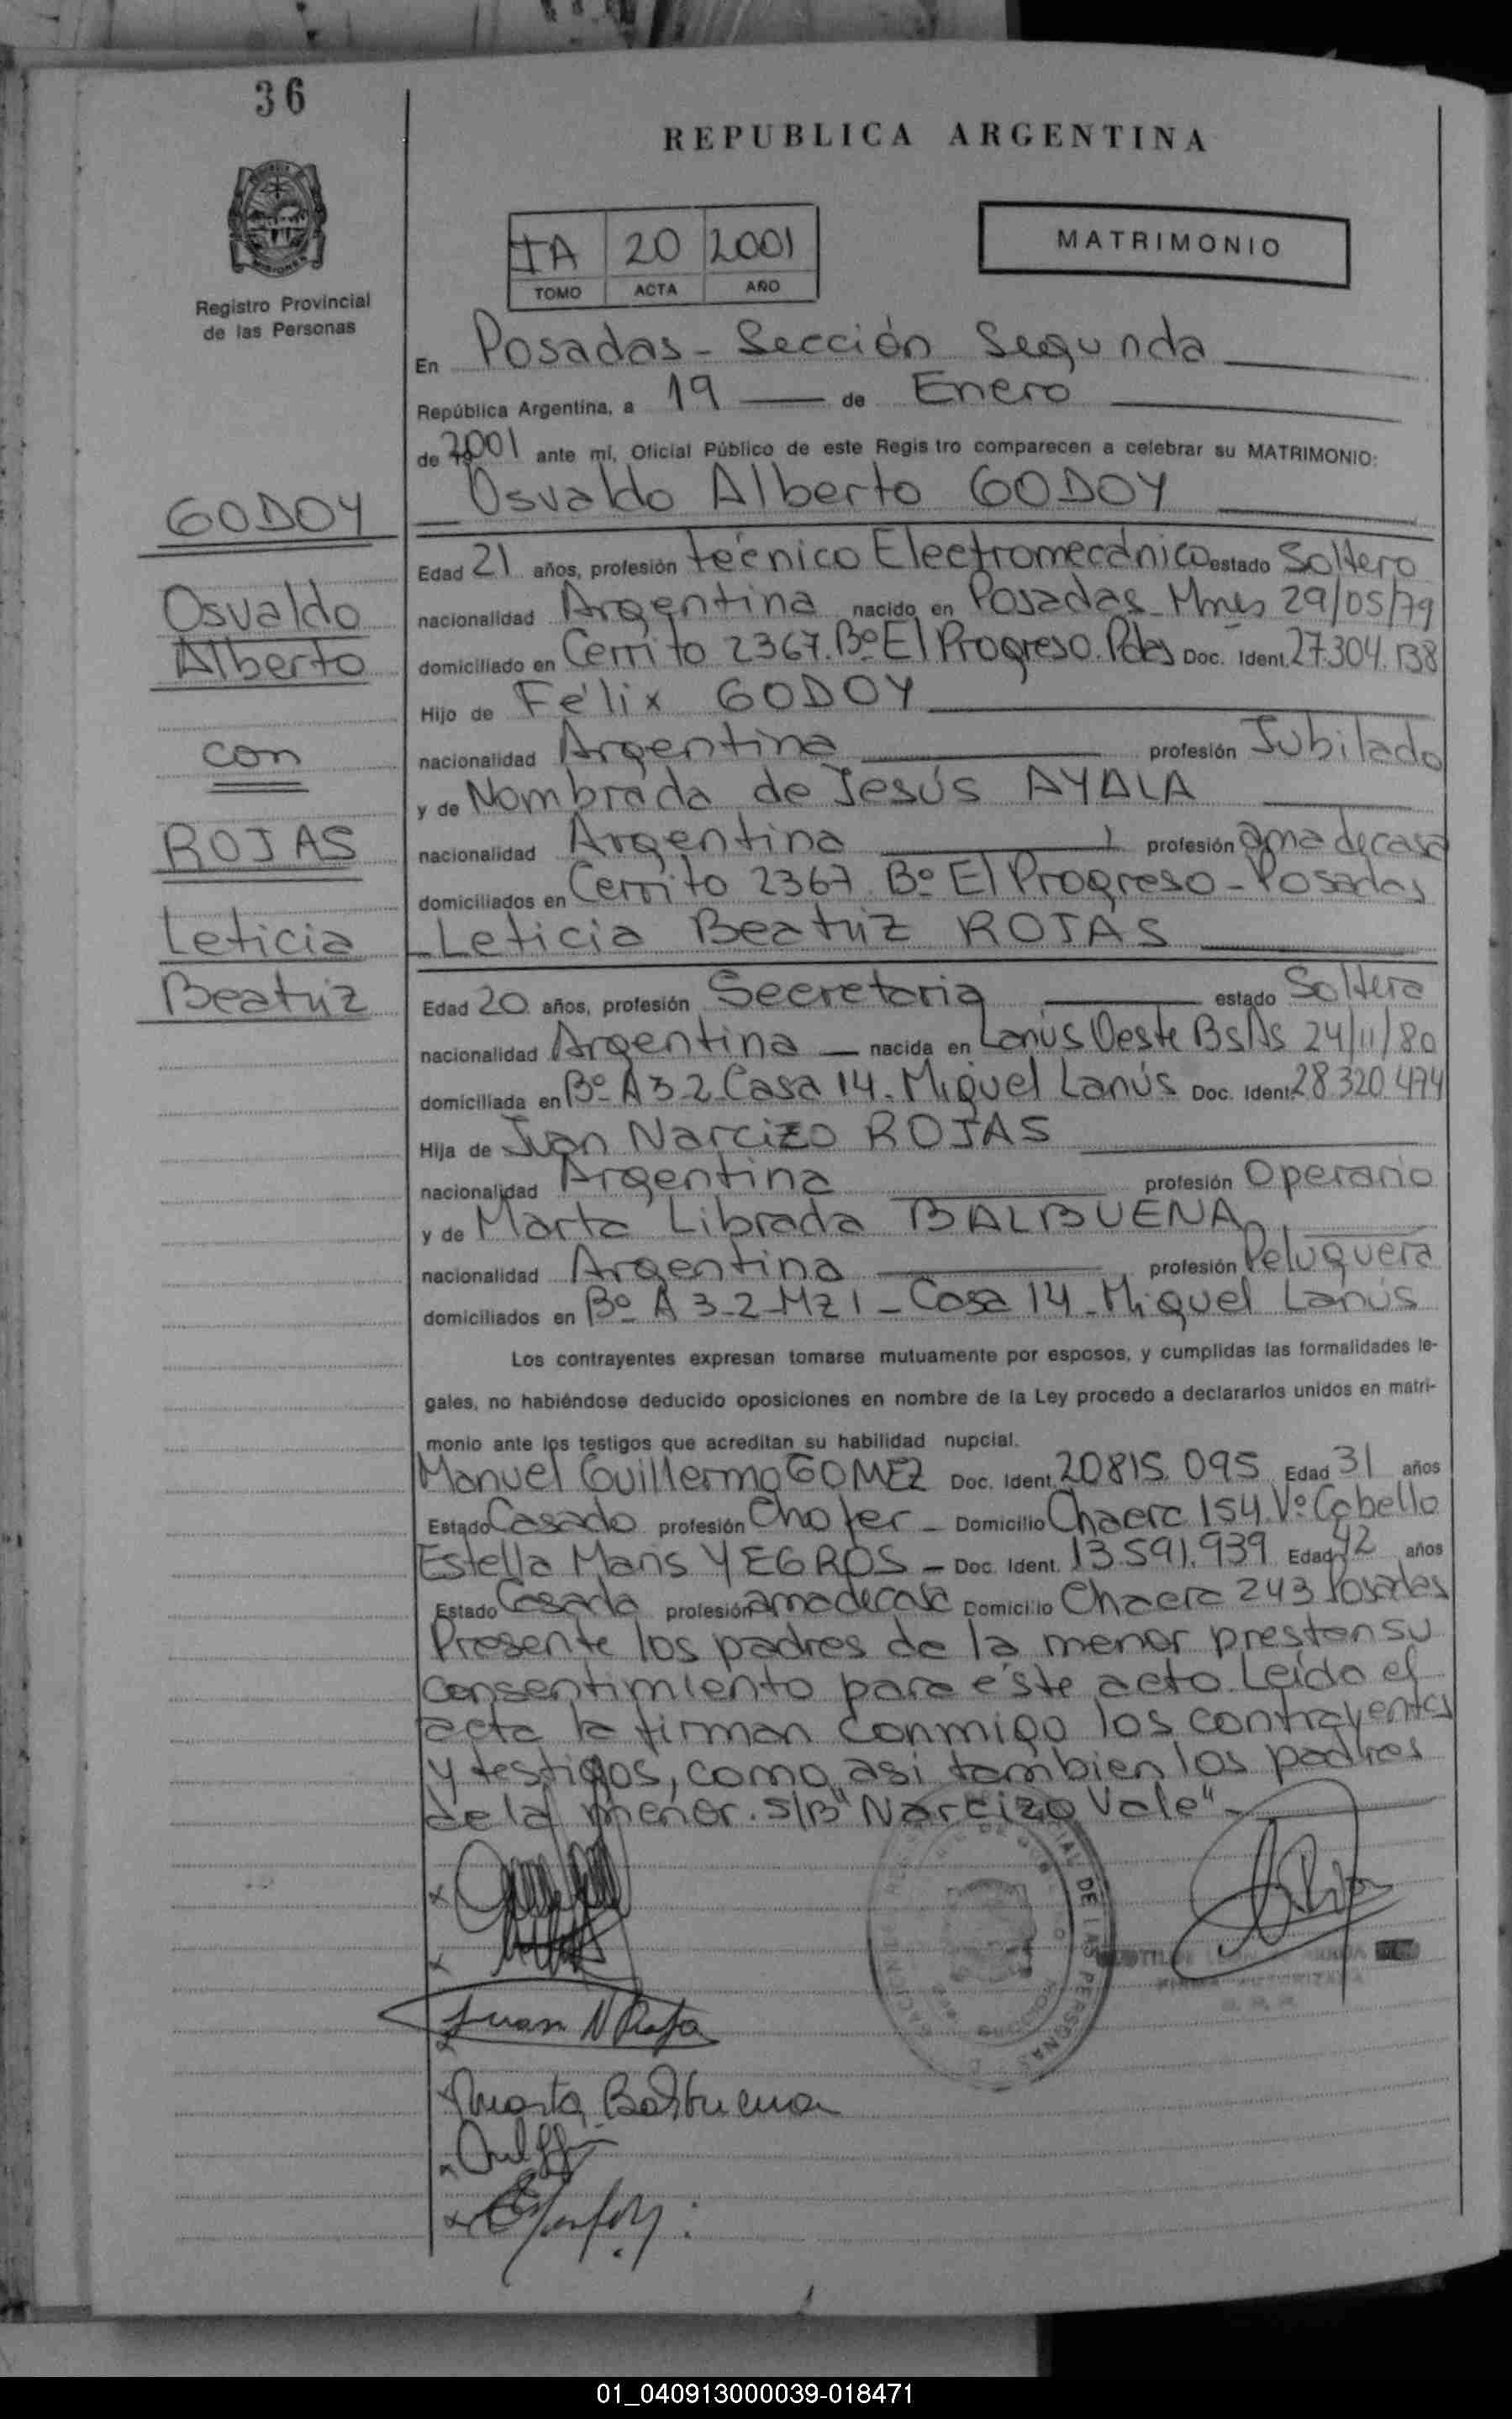 36
REPUBLICA ARGENTINA
MATRIMONIO
IA 20 2001
TOMO ACTA AÑO
Registro Provincial
de las Personas
En Posadas - Sección Segunda
República Argentina, a 19 de Enero
de 2001 ante mí, Oficial Público de este Registro comparecen a celebrar su MATRIMONIO:
Osvaldo Alberto GODOY
GODOY
Osvaldo
Alberto
con
ROJAS
Leticia
Beatriz
Edad 21 años, profesión técnico Electromecánico estado Soltero
nacionalidad Argentina nacido en Posadas - Mnes 29/05/79
domiciliado en Cerrito 2367. Bº El Progreso. Pdas Doc. Ident. 27.304.138
Hijo de Félix GODOY
nacionalidad Argentina profesión Jubilado
y de Nombrada de Jesús AYALA
nacionalidad Argentina profesión ama de casa
domiciliados en Cerrito 2367 Bº El Progreso - Posadas
Leticia Beatriz ROJAS
Edad 20 años, profesión Secretaria estado Soltera
nacionalidad Argentina - nacida en Lanús Oeste BsAs 24/11/80
domiciliada en Bº A 3-2 Casa 14 - Miguel Lanús Doc. Ident. 28.320.474
Hija de Juan Narcizo ROJAS
nacionalidad Argentina profesión Operario
y de Marta Librada BALBUENA
nacionalidad Argentina profesión Peluquera
domiciliados en Bº A 3-2-Mz 1 - Casa 14 - Miguel Lanús
Los contrayentes expresan tomarse mutuamente por esposos, y cumplidas las formalidades le-
gales, no habiéndose deducido oposiciones en nombre de la Ley procedo a declararlos unidos en matri-
monio ante los testigos que acreditan su habilidad nupcial.
Manuel Guillermo GOMEZ Doc. Ident. 20815.095 Edad 31 años
Estado Casado profesión Chofer - Domicilio Chacra 154. Vº Cabello
Estella Maris YEGROS - Doc. Ident. 13.591.939 Edad 42 años
Estado Casada profesión ama de casa Domicilio Chacra 243 Posadas
Presente los padres de la menor prestan su
consentimiento para éste acto. Leído el
acta la firman conmigo los contrayentes
y testigos, como asi tambien los padres
de la menor. S/B "Narcizo Vale"
DE LAS PERSONAS
Juan N Roja
Marta Balbuena
01_040913000039-018471